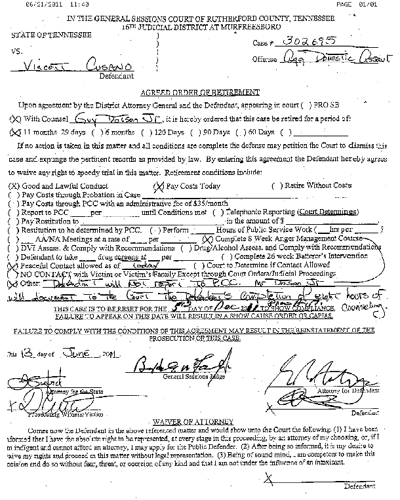 06/21/2011 11:43 PAGE 01/01
IN THE GENERAL SESSIONS COURT OF RUTHERFORD COUNTY, TENNESSEE
16TH JUDICIAL DISTRICT AT MURFREESBORO
STATE OF TENNESSEE )
VS. ) Case # 302695
) Offense Agg Domestic Assault
Vincent Cusano
Defendant
AGREED ORDER OF RETIREMENT
Upon agreement by the District Attorney General and the Defendant, appearing in court ( ) PRO SE
(X) With Counsel Guy Dotson Jr, it is hereby ordered that this case be retired for a period of:
(X) 11 months 29 days ( ) 6 months ( ) 120 Days ( ) 90 Days ( ) 60 Days ( )
If no action is taken in this matter and all conditions are complete the defense may petition the Court to dismiss this
case and expunge the pertinent records as provided by law. By entering this agreement the Defendant hereby agrees
to waive any right to speedy trial in this matter. Retirement conditions include:
(X) Good and Lawful Conduct (X) Pay Costs Today ( ) Retire Without Costs
( ) Pay Costs through Probation in Case
( ) Pay Costs through PCC with an administrative fee of $35/month
( ) Report to PCC ___ per ___ until Conditions met ( ) Telephonic Reporting (Court Determines)
( ) Pay Restitution to ___ in the amount of $
( ) Restitution to be determined by PCC. ( ) Perform ___ Hours of Public Service Work ( __ hrs per __ )
( ) ___ AA/NA Meetings at a rate of ___ per ___ (X) Complete 8 Week Anger Management Course
( ) DVI Assess. & Comply with Recommendations ( ) Drug/Alcohol Assess. and Comply with Recommendations
( ) Defendant to take ___ drug screens at ___ per ___ ( ) Complete 26 week Batterer's Intervention
(X) Peaceful Contact allowed as of today ( ) Court to Determine if Contact Allowed
( ) NO CONTACT with Victim or Victim's Family Except through Court Orders/Judicial Proceedings
(X) Other: Defendant will Not report to P.C.C. Mr Dotson Jr
will document to the Court the Defendant's completion of eight hours of
counseling.
THIS CASE IS TO BE RESET FOR THE 5th DAY OF Dec 2011 TO SHOW COMPLIANCE.
FAILURE TO APPEAR ON THIS DATE WILL RESULT IN A SHOW CAUSE ORDER OR CAPIAS.
FAILURE TO COMPLY WITH THE CONDITIONS OF THIS AGREEMENT MAY RESULT IN THE REINSTATEMENT OF THE
PROSECUTION OF THIS CASE.
This 13 day of June, 2011
General Sessions Judge
Attorney for the State
Attorney for Defendant
Prosecuting Witness/Victim
Defendant
WAIVER OF ATTORNEY
Comes now the Defendant in the above referenced matter and would show unto the Court the following: (1) I have been
informed that I have the absolute right to be represented, at every stage in this proceeding, by an attorney of my choosing, or, if I
am indigent and cannot afford an attorney, I may apply for the Public Defender. (2) After being so informed, it is my desire to
waive my rights and proceed in this matter without legal representation. (3) Being of sound mind, I am competent to make this
decision and do so without fear, threat, or coercion of any kind and that I am not under the influence of an intoxicant.
X
Defendant